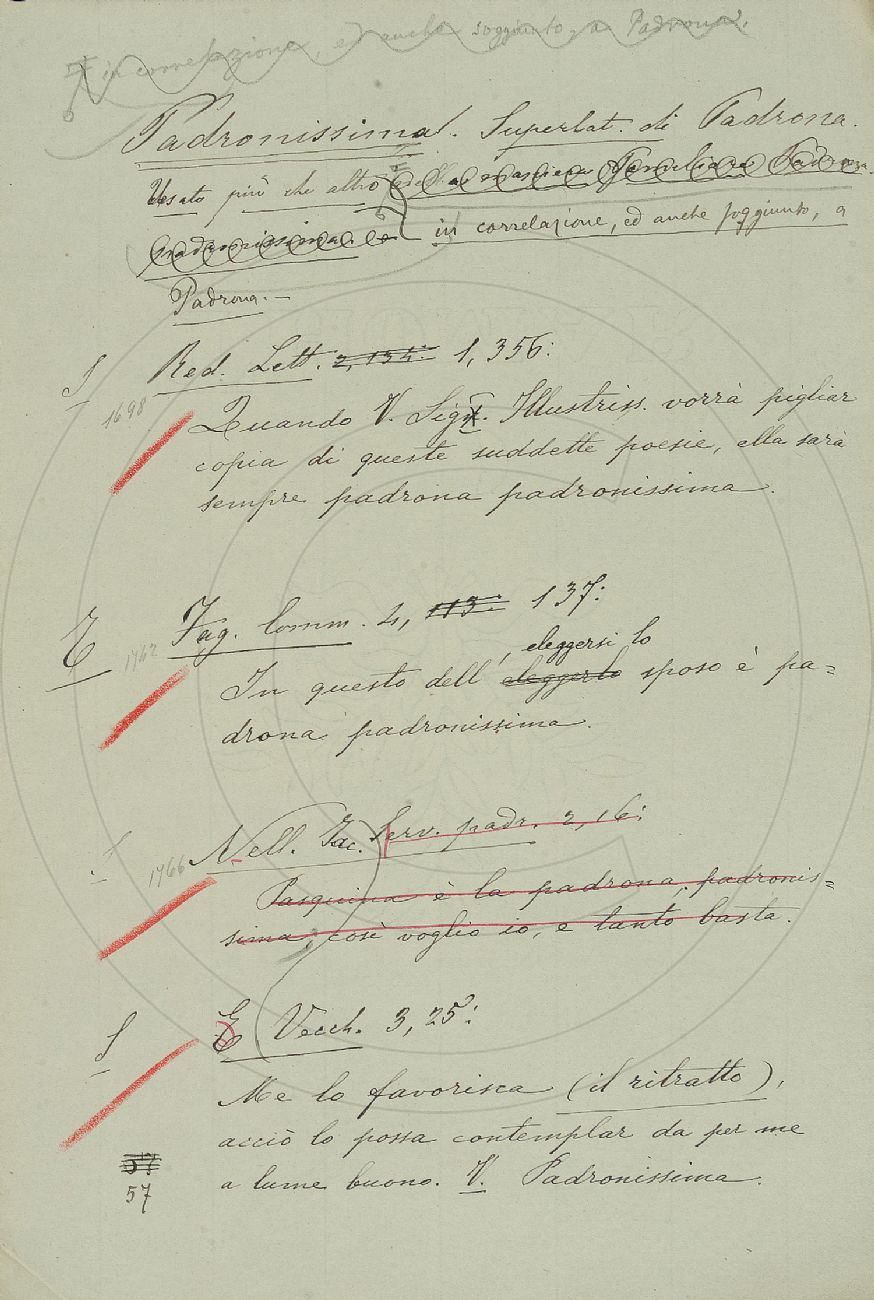 E in correlazione, ed anche soggiunto, a Padrona.
Padronissima. Superlat. di Padrona.
Usato più che altro nella maniera familiare Padrona
padronissima. e in correlazione, ed anche soggiunto, a
Padrona. —
S Red. Lett. 2, 134: 1, 356:
1698 Quando V. Sig. Illustriss. vorrà pigliar
copia di queste suddette poesie, ella sarà
sempre padrona padronissima.
E Fag. Comm. 4, 113: 137:
, eleggersi lo
1762 In questo dell' eleggerlo sposo è pa=
drona padronissima.
S Nell. Jac. Serv. padr. 2, 16:
1766 Pasquina è la padrona, padronis=
sima; così voglio io, e tanto basta.
S E Vecch. 3, 25:
Me lo favorisca (il ritratto),
acciò lo possa contemplar da per me
a lume buono. V. Padronissima.
57
57